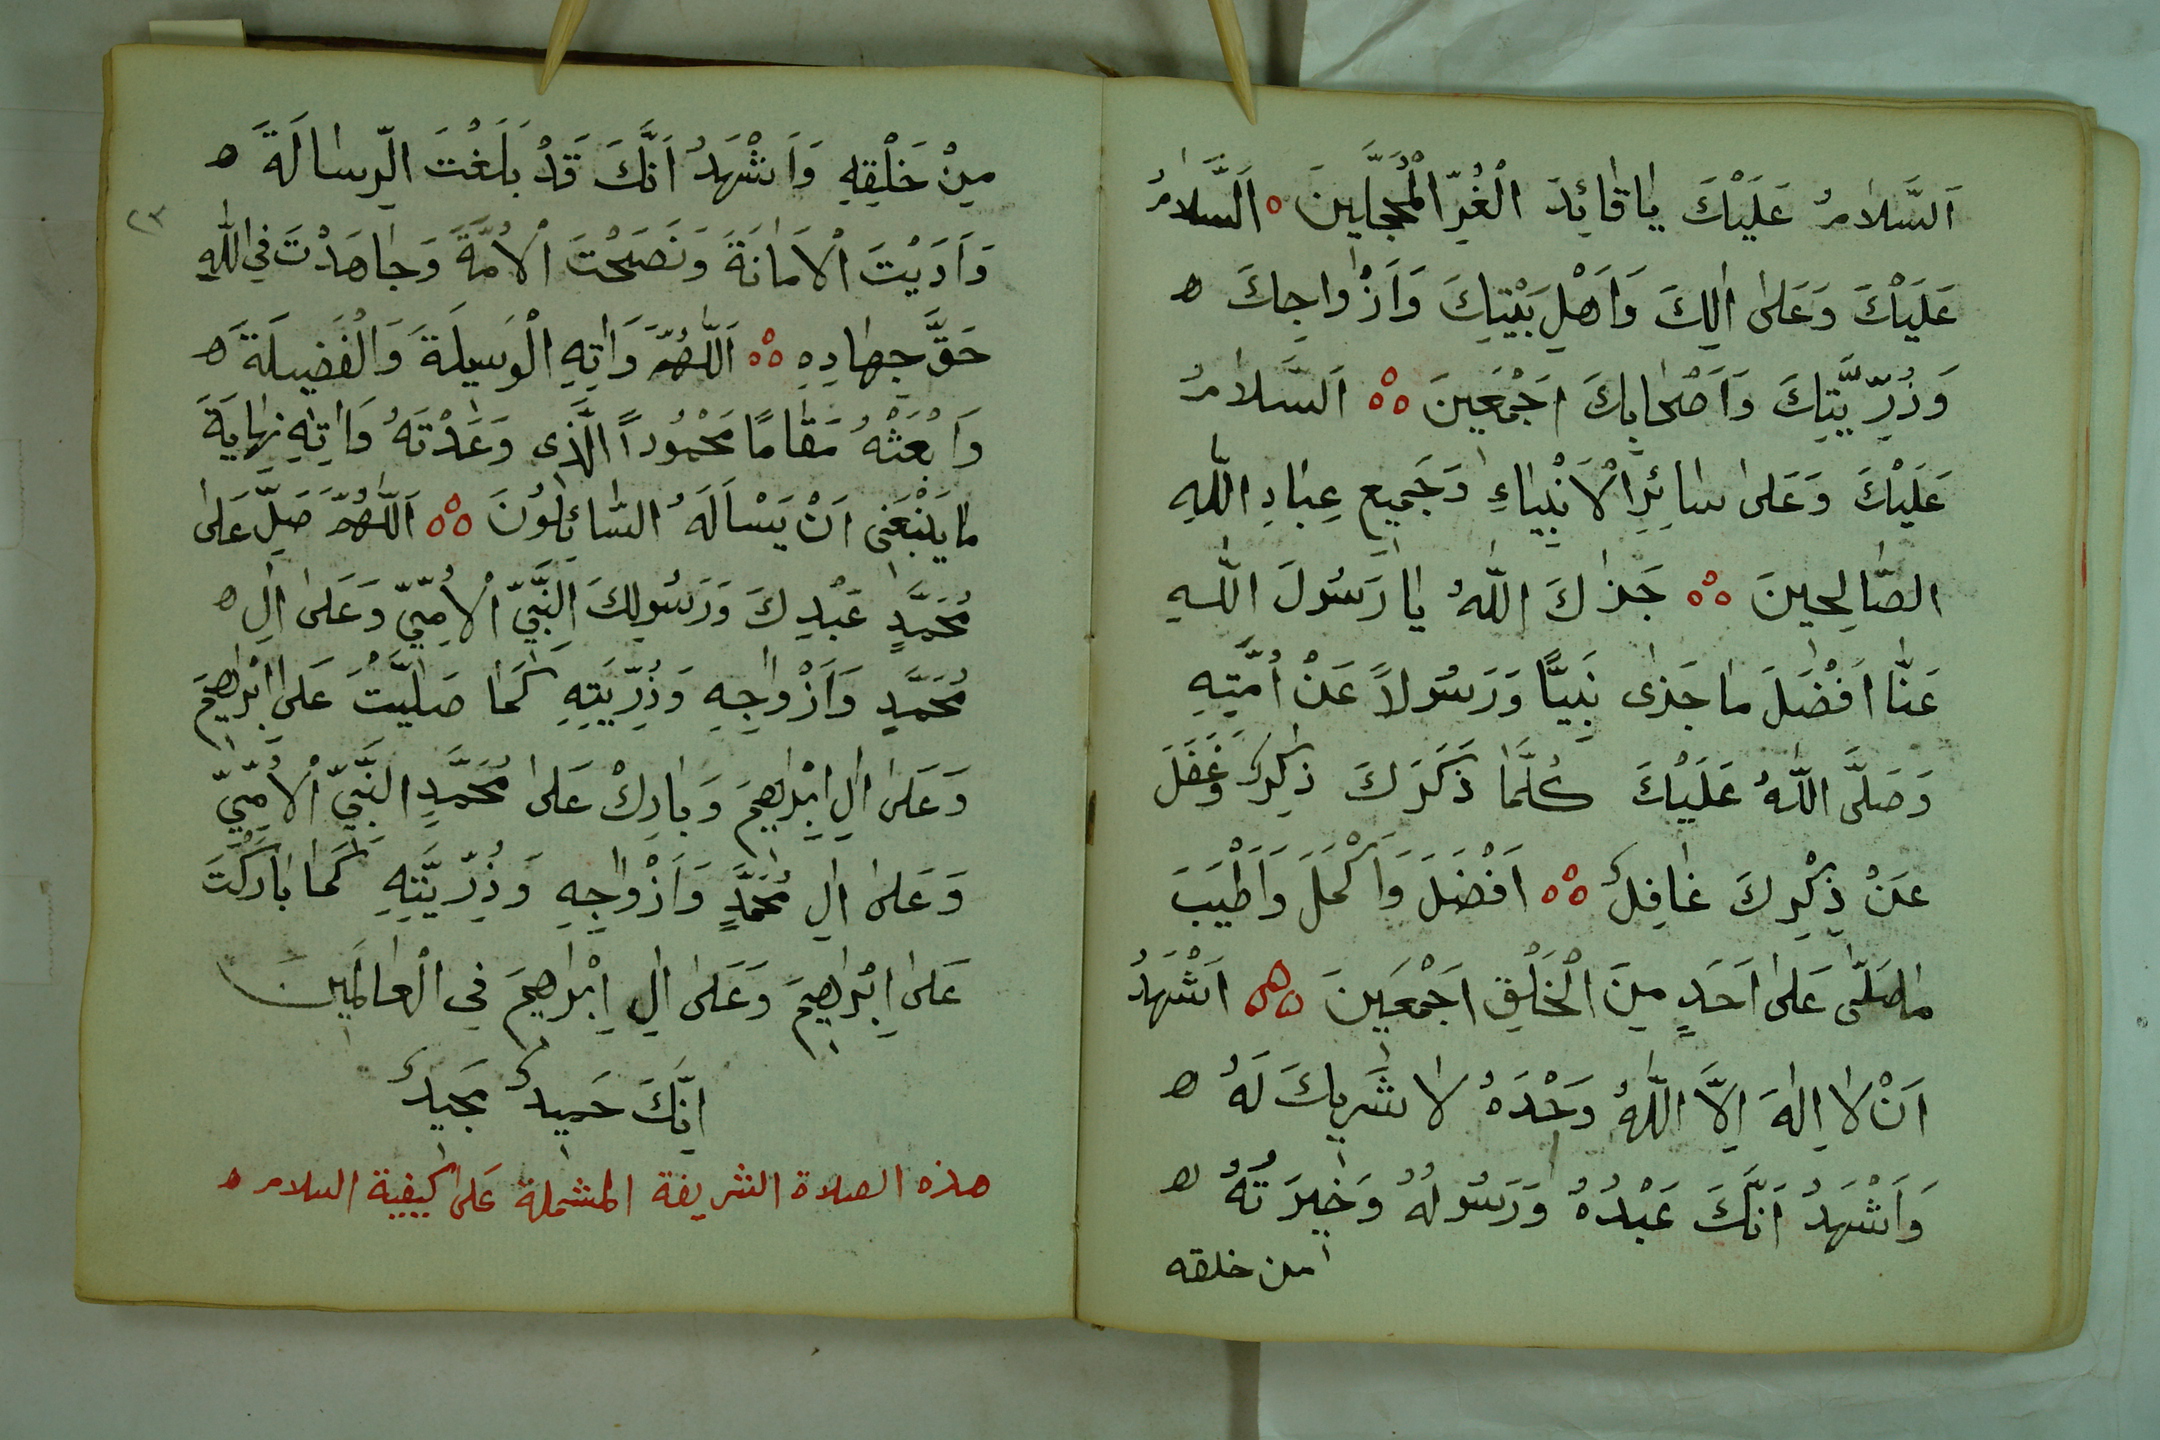 اَلسَّلَامُ عَلَيْكَ يَا قَائِدَ الْغُرِّ الْمُحَجَّلِينَ ه اَلسَّلَامُ
عَلَيْكَ وَعَلَى اٰلِكَ وَاَهْلِ بَيْتِكَ وَاَزْوَاجِكَ ه
وَذُرِّيَّتِكَ وَاَصْحَابِكَ اَجْمَعِينَ ∴ اَلسَّلَامُ
عَلَيْكَ وَعَلَى سَائِرِ الْاَنْبِيَاءِ وَجَمِيعِ عِبَادِ اللّٰهِ
الصَّالِحِينَ ∴ جَزَاكَ اللّٰهُ يَا رَسُولَ اللّٰهِ
عَنَّا اَفْضَلَ مَا جَزٰى نَبِيًّا وَرَسُولًا عَنْ اُمَّتِهِ
وَصَلَّى اللّٰهُ عَلَيْكَ كُلَّمَا ذَكَرَكَ ذَاكِرٌ وَغَفَلَ
عَنْ ذِكْرِكَ غَافِلٌ ∴ اَفْضَلَ وَاَكْمَلَ وَاَطْيَبَ
مَا صَلَّى عَلَى اَحَدٍ مِنَ الْخَلْقِ اَجْمَعِينَ ∴ اَشْهَدُ
اَنْ لَا اِلٰهَ اِلَّا اللّٰهُ وَحْدَهُ لَا شَرِيكَ لَهُ ه
وَاَشْهَدُ اَنَّكَ عَبْدُهُ وَرَسُولُهُ وَخِيرَتُهُ ه
من خلقه
مِنْ خَلْقِهِ وَاَشْهَدُ اَنَّكَ قَدْ بَلَغْتَ الرِّسَالَةَ ه
٢٣
وَاَدَيْتَ الْاَمَانَةَ وَنَصَحْتَ الْاُمَّةَ وَجَاهَدْتَ فِي اللّٰهِ
حَقَّ جِهَادِهِ ∴ اَللّٰهُمَّ وَاٰتِهِ الْوَسِيلَةَ وَالْفَضِيلَةَ ه
وَابْعَثْهُ مَقَامًا مَحْمُودًا الَّذِى وَعَدْتَهُ وَاٰتِهِ نِهَايَةَ
مَا يَنْبَغِى اَنْ يَسْاَلَهُ السَّائِلُونَ ∴ اَللّٰهُمَّ صَلِّ عَلَى
مُحَمَّدٍ عَبْدِكَ وَرَسُولِكَ النَّبِيِّ الْاُمِّيِّ وَعَلَى اٰلِ ه
مُحَمَّدٍ وَاَزْوَاجِهِ وَذُرِّيَّتِهِ كَمَا صَلَّيْتَ عَلَى اِبْرٰهِيمَ
وَعَلَى اٰلِ اِبْرٰهِيمَ وَبَارِكْ عَلَى مُحَمَّدٍ النَّبِيِّ الْاُمِّيِّ
وَعَلَى اٰلِ مُحَمَّدٍ وَاَزْوَاجِهِ وَذُرِّيَّتِهِ كَمَا بَارَكْتَ
عَلَى اِبْرٰهِيمَ وَعَلَى اٰلِ اِبْرٰهِيمَ فِي الْعَالَمِينَ
اِنَّكَ حَمِيدٌ مَجِيدٌ
هذه الصلاة الشريفة المشملة عَلَى كيفية السلام ه